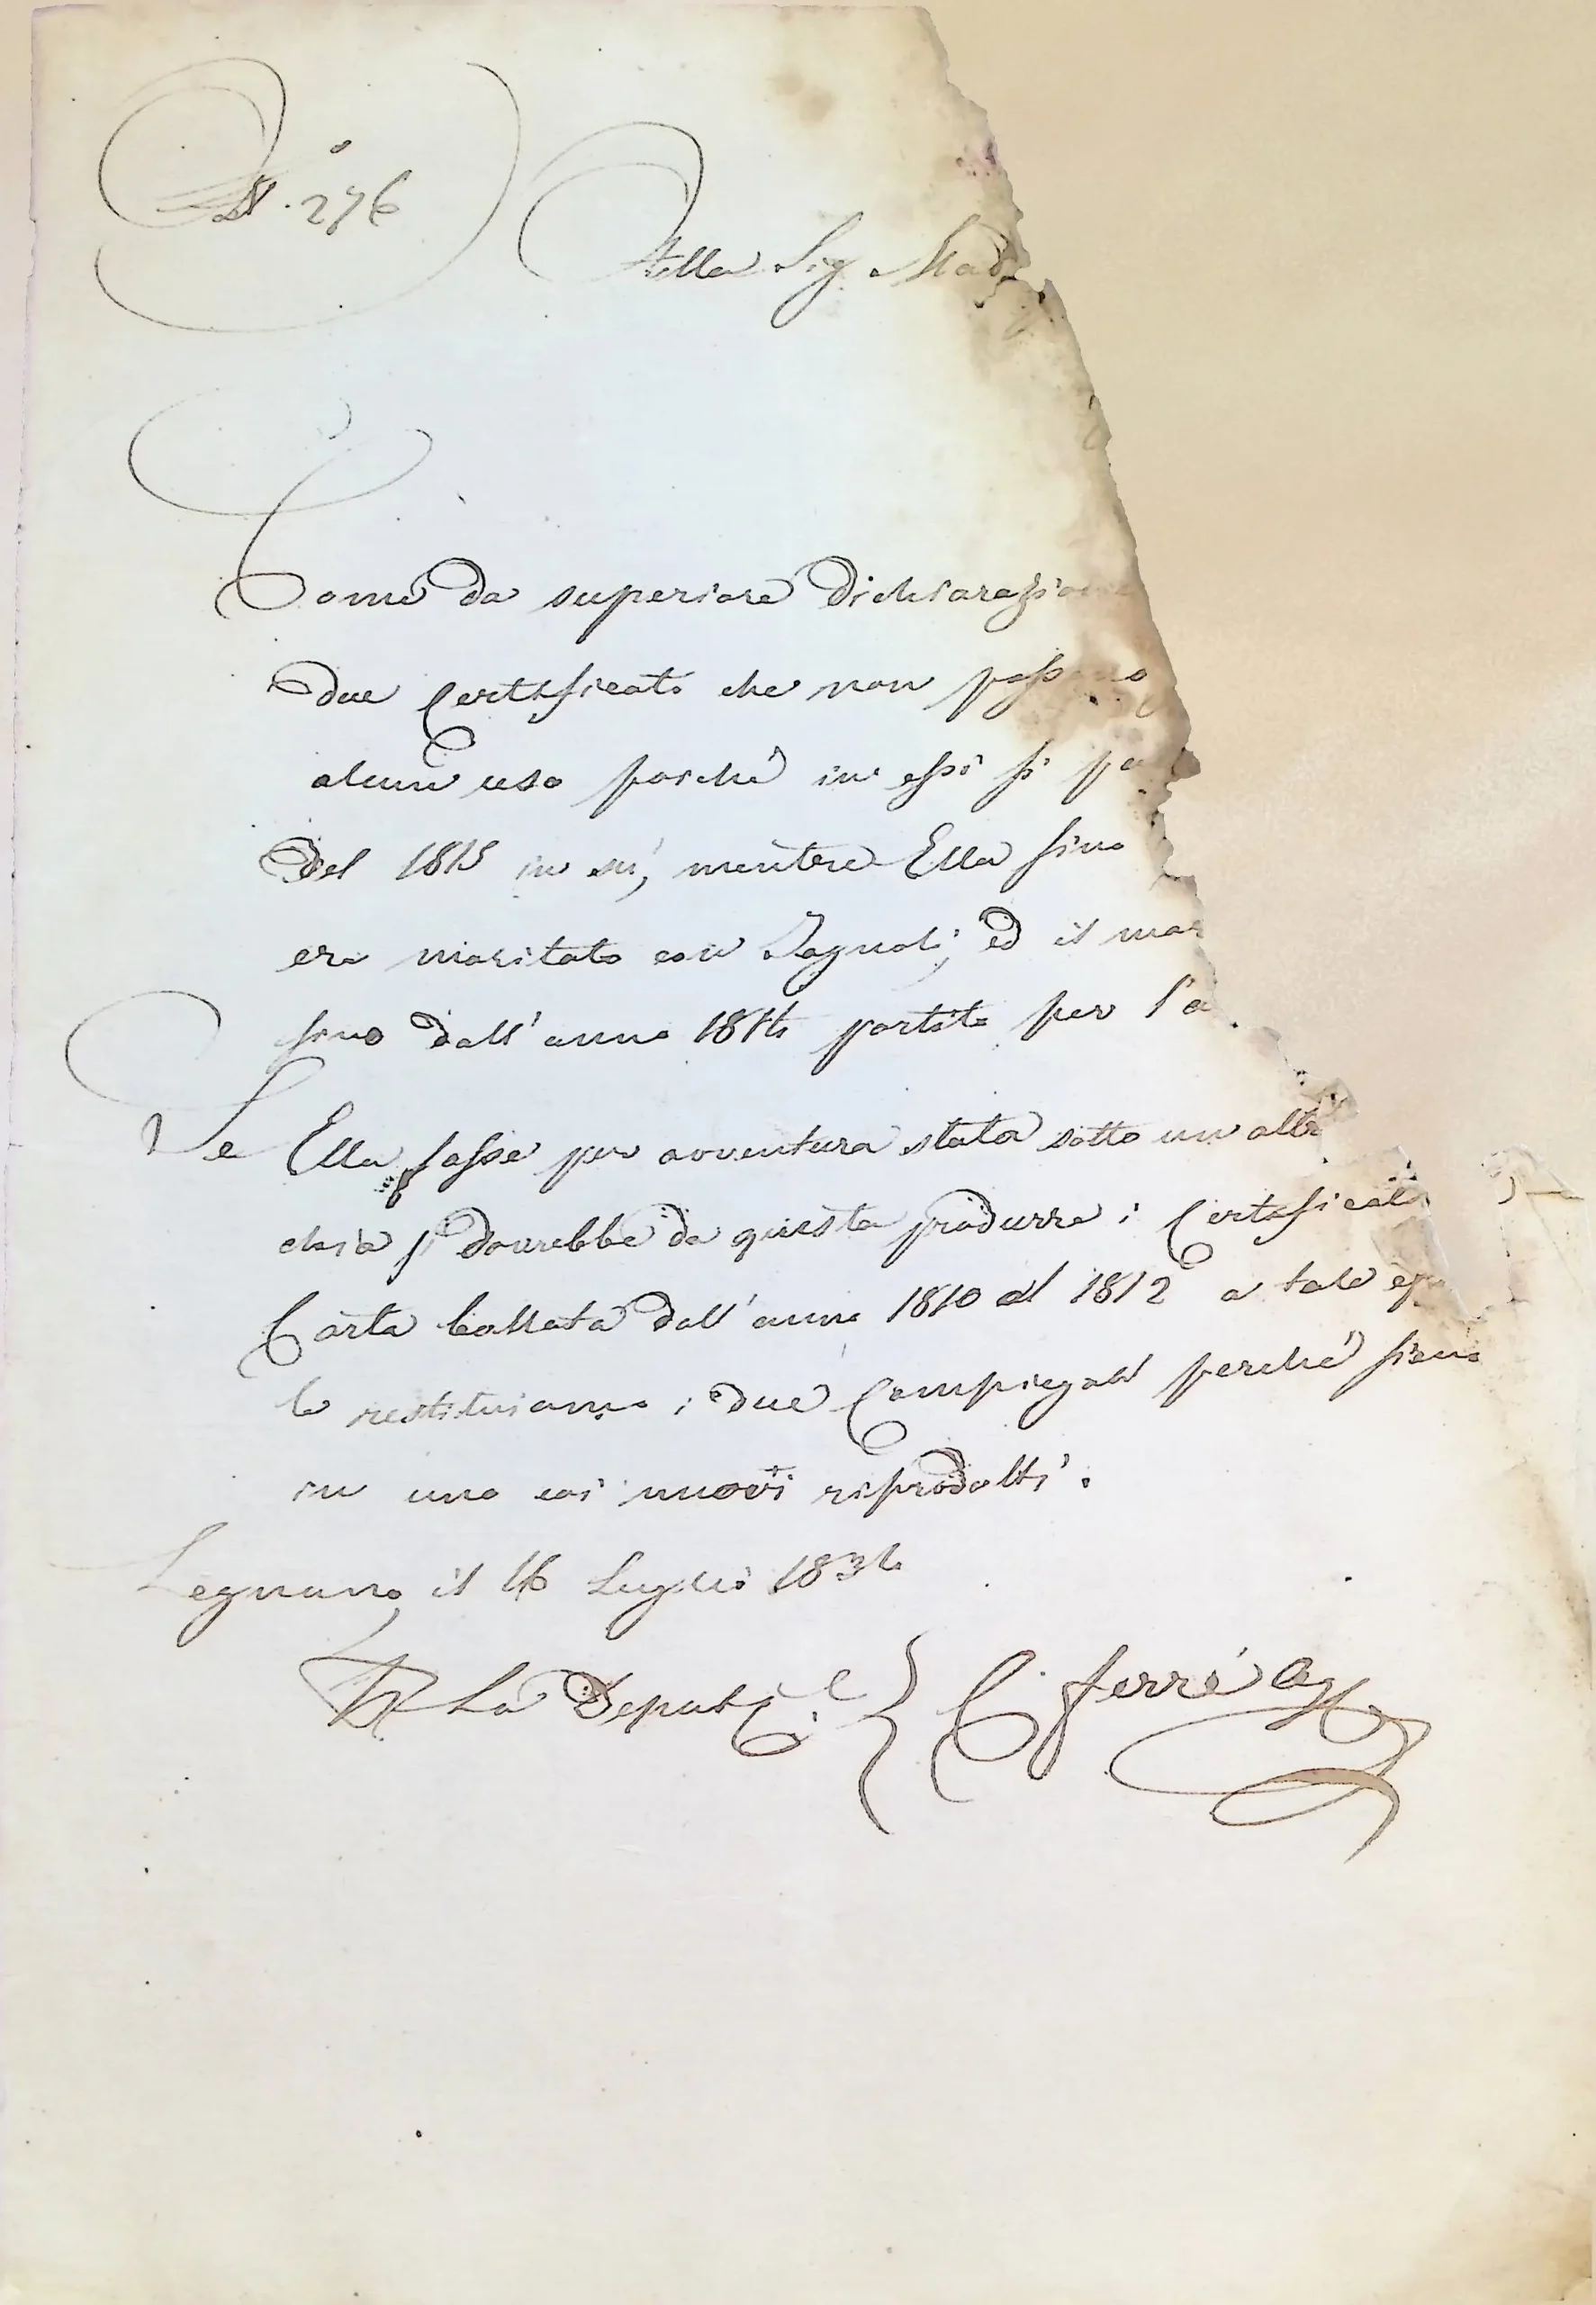 N.° 276
Alla Sig. Mad
Come da superiore Dichiarazione
due Certificati che non possono
alcun uso poichè in essi si pa
Del 1815 in su, mentre Ella sino
era maritata con Zagnoli, ed il mar
sino dall'anno 1814 partito per l'a
Se Ella fosse per avventura stata sotto un altr
chia si dovrebbe da questa produrre i Certificat
Carta bollata dall'anno 1810 al 1812 a tale ef
le restituiamo i due Compiegati perchè sieno
in uno coi nuovi riprodotti.
Legnano il 16 Luglio 1834
La Deputz.e C. ferrè